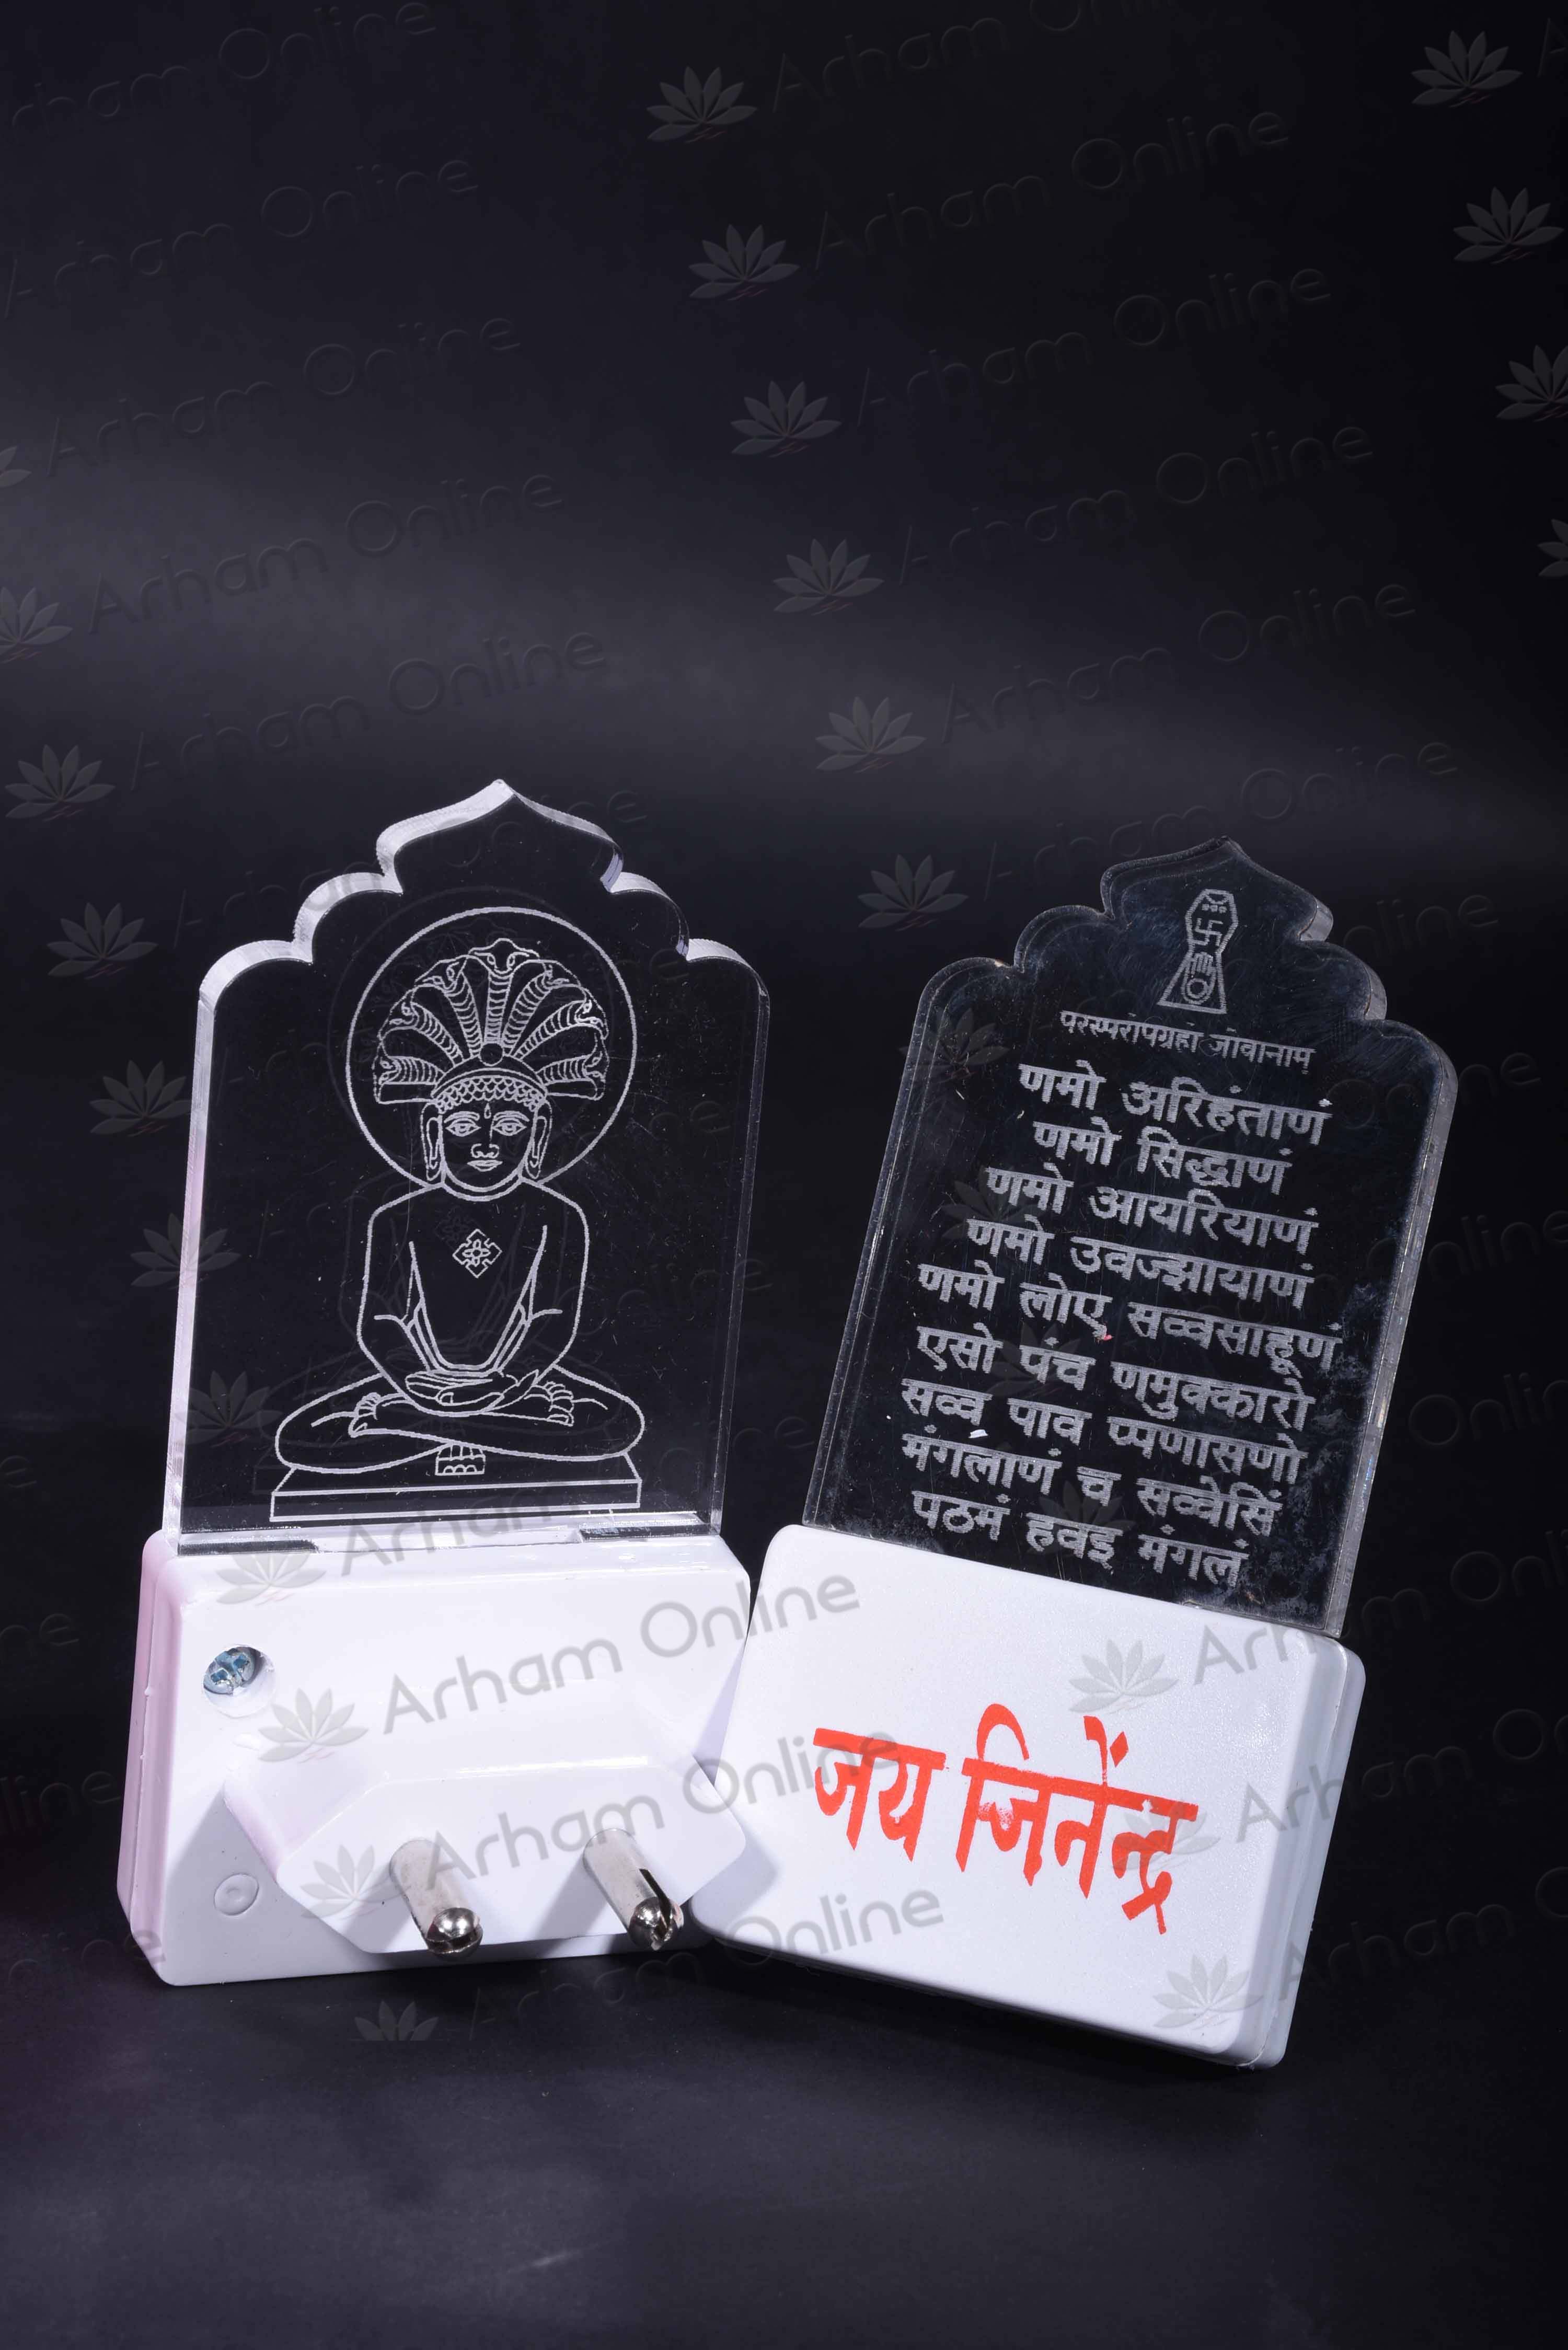 परस्परोपग्रहो जीवानाम्
णमो अरिहंताणं
णमो सिद्धाणं
णमो आयरियाणं
णमो उवज्झायाणं
णमो लोए सव्वसाहूणं
एसो पंच णमुक्कारो
सव्व पाव प्पणासणो
मंगलाणं च सव्वेसिं
पठमं हवइ मंगलं
जय जिनेंन्द्र
Arham Online